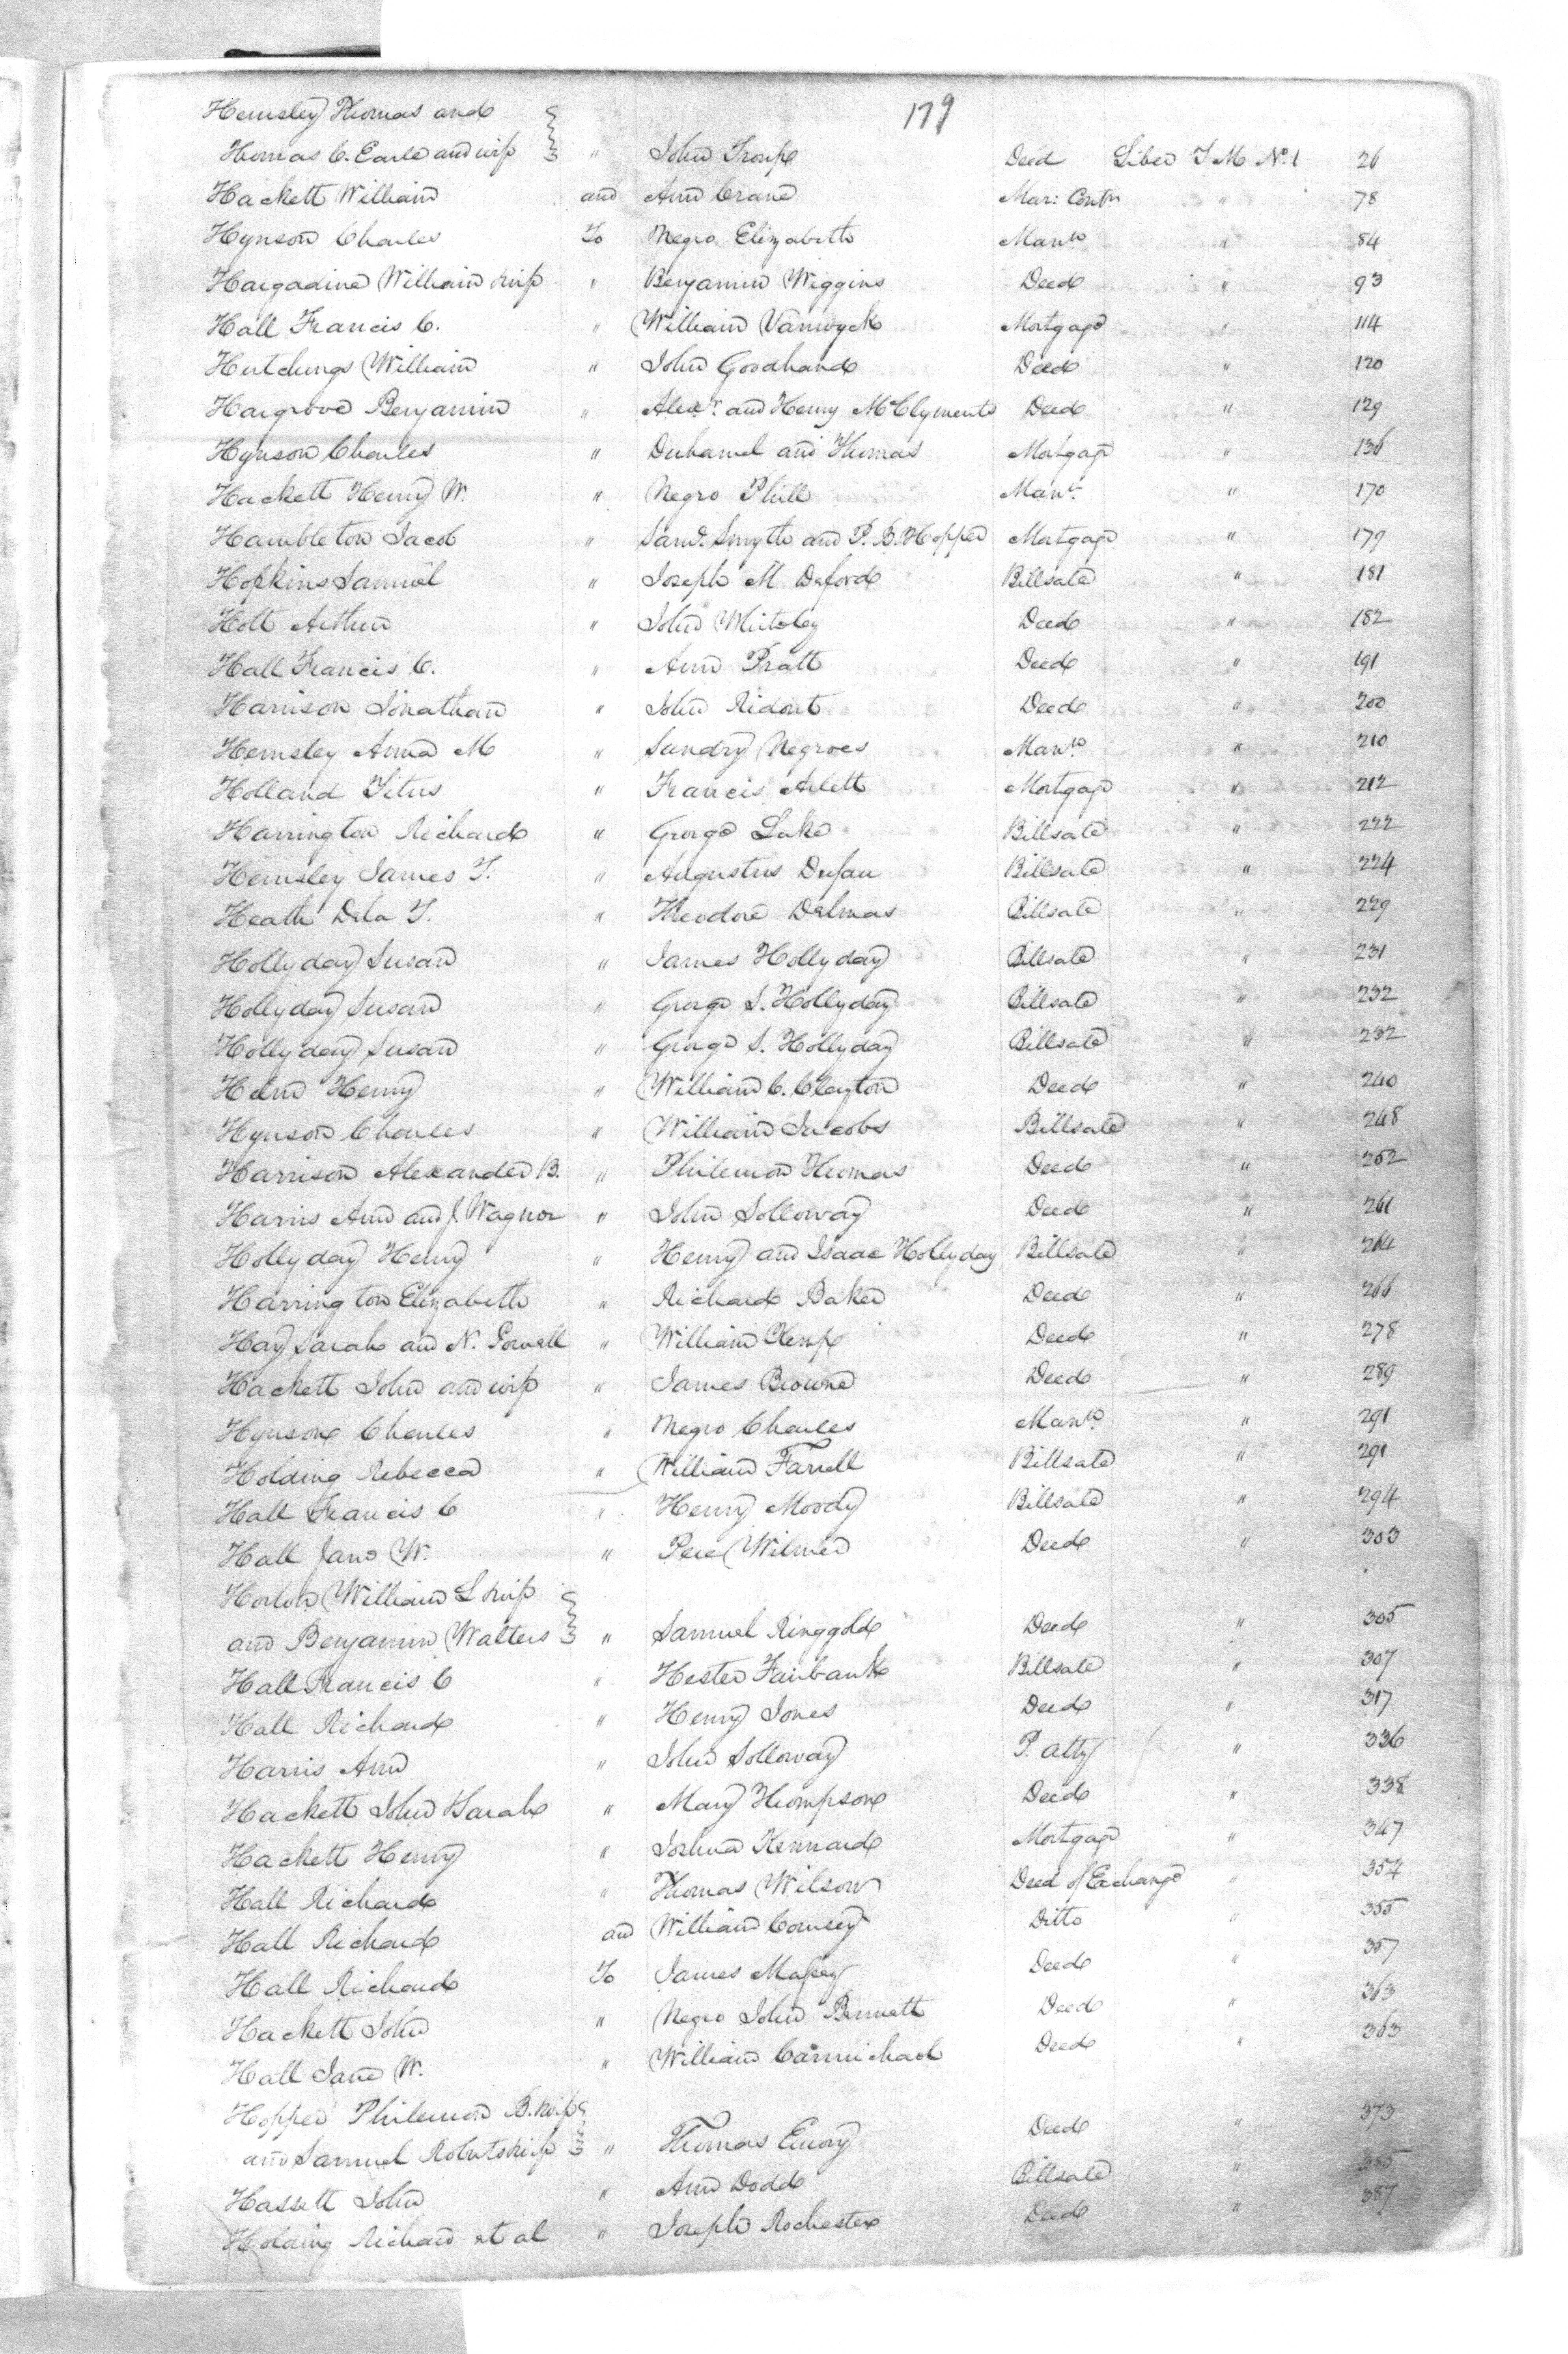 179
Hemsley Thomas and
Thomas C. Earle and wife " John Troupe Deed Liber T M No. 1 26
Hackett William and Ann Crane Mar: Contr " 78
Hynson Charles To Negro Elizabeth Mann " 84
Hargadine William & wife " Benjamin Wiggins Deed " 93
Hall Francis C. " William Vanwyck Mortgage " 114
Hutchings William " John Goodhand Deed " 120
Hargrove Benjamin " Alexr. and Henry McClyments Deed " 129
Hynson Charles " Duhamel and Thomas Mortgage " 136
Hackett Henry W. " Negro Phill Mann. " 170
Hambleton Jacob " Saml. Smyth and P. B. Hopper Mortgage " 179
Hopkins Samuel " Joseph M Deford Billsale " 181
Holt Arthur " John Whiteley Deed " 182
Hall Francis C. " Ann Pratt Deed " 191
Harrison Jonathan " John Ridout Deed " 200
Hemsley Anna M " Sundry Negroes Mann. " 210
Holland Titus " Francis Arlett Mortgage " 212
Harrington Richard " George Lake Billsale " 222
Hemsley James T. " Augustus Dufau Billsale " 224
Heath Dela T. " Theodore Delmas Billsale " 229
Hollyday Susan " James Hollyday Billsale " 231
Hollyday Susan " George S. Hollyday Billsale " 232
Hollyday Susan " George S. Hollyday Billsale " 232
Helm Henry " William C. Clayton Deed " 240
Hynson Charles " William Jacobs Billsale " 248
Harrison Alexander B. " Philemon Thomas Deed " 252
Harris Ann and J. Wagner " John Solloway Deed " 261
Hollyday Henry " Henry and Isaac Hollyday Billsale " 264
Harrington Elizabeth " Richard Baker Deed " 266
Hay Sarah and N. Powell " William Kemp Deed " 278
Hackett John and wife " James Browne Deed " 289
Hynson Charles " Negro Charles Mann. " 291
Holding Rebecca " William Farrell Billsale " 291
Hall Francis C " Henry Moody Billsale " 294
Hall Jane W. " Pere Wilmer Deed " 303
Horton William L & wife
and Benjamin Walters " Samuel Ringgold Deed " 305
Hall Francis C " Hester Fairbank Billsale " 307
Hall Richard " Henry Jones Deed " 317
Harris Ann " John Solloway P. atty " 336
Hackett John & Sarah " Mary Thompson Deed " 338
Hackett Henry " Joshua Kennard Mortgage " 347
Hall Richard " Thomas Wilson Deed of Exchange " 354
Hall Richard and William Comsey Ditto " 355
Hall Richard To James Massey Deed " 357
Hackett John " Negro John Bennett Deed " 363
Hall Jane W. " William Carmichael Deed " 363
Hopper Philemon B. & wife
and Samuel Roberts & wife " Thomas Emory Deed " 373
Hassett John " Ann Dodd Billsale " 385
Holding Richard et al " Joseph Rochester Deed " 387